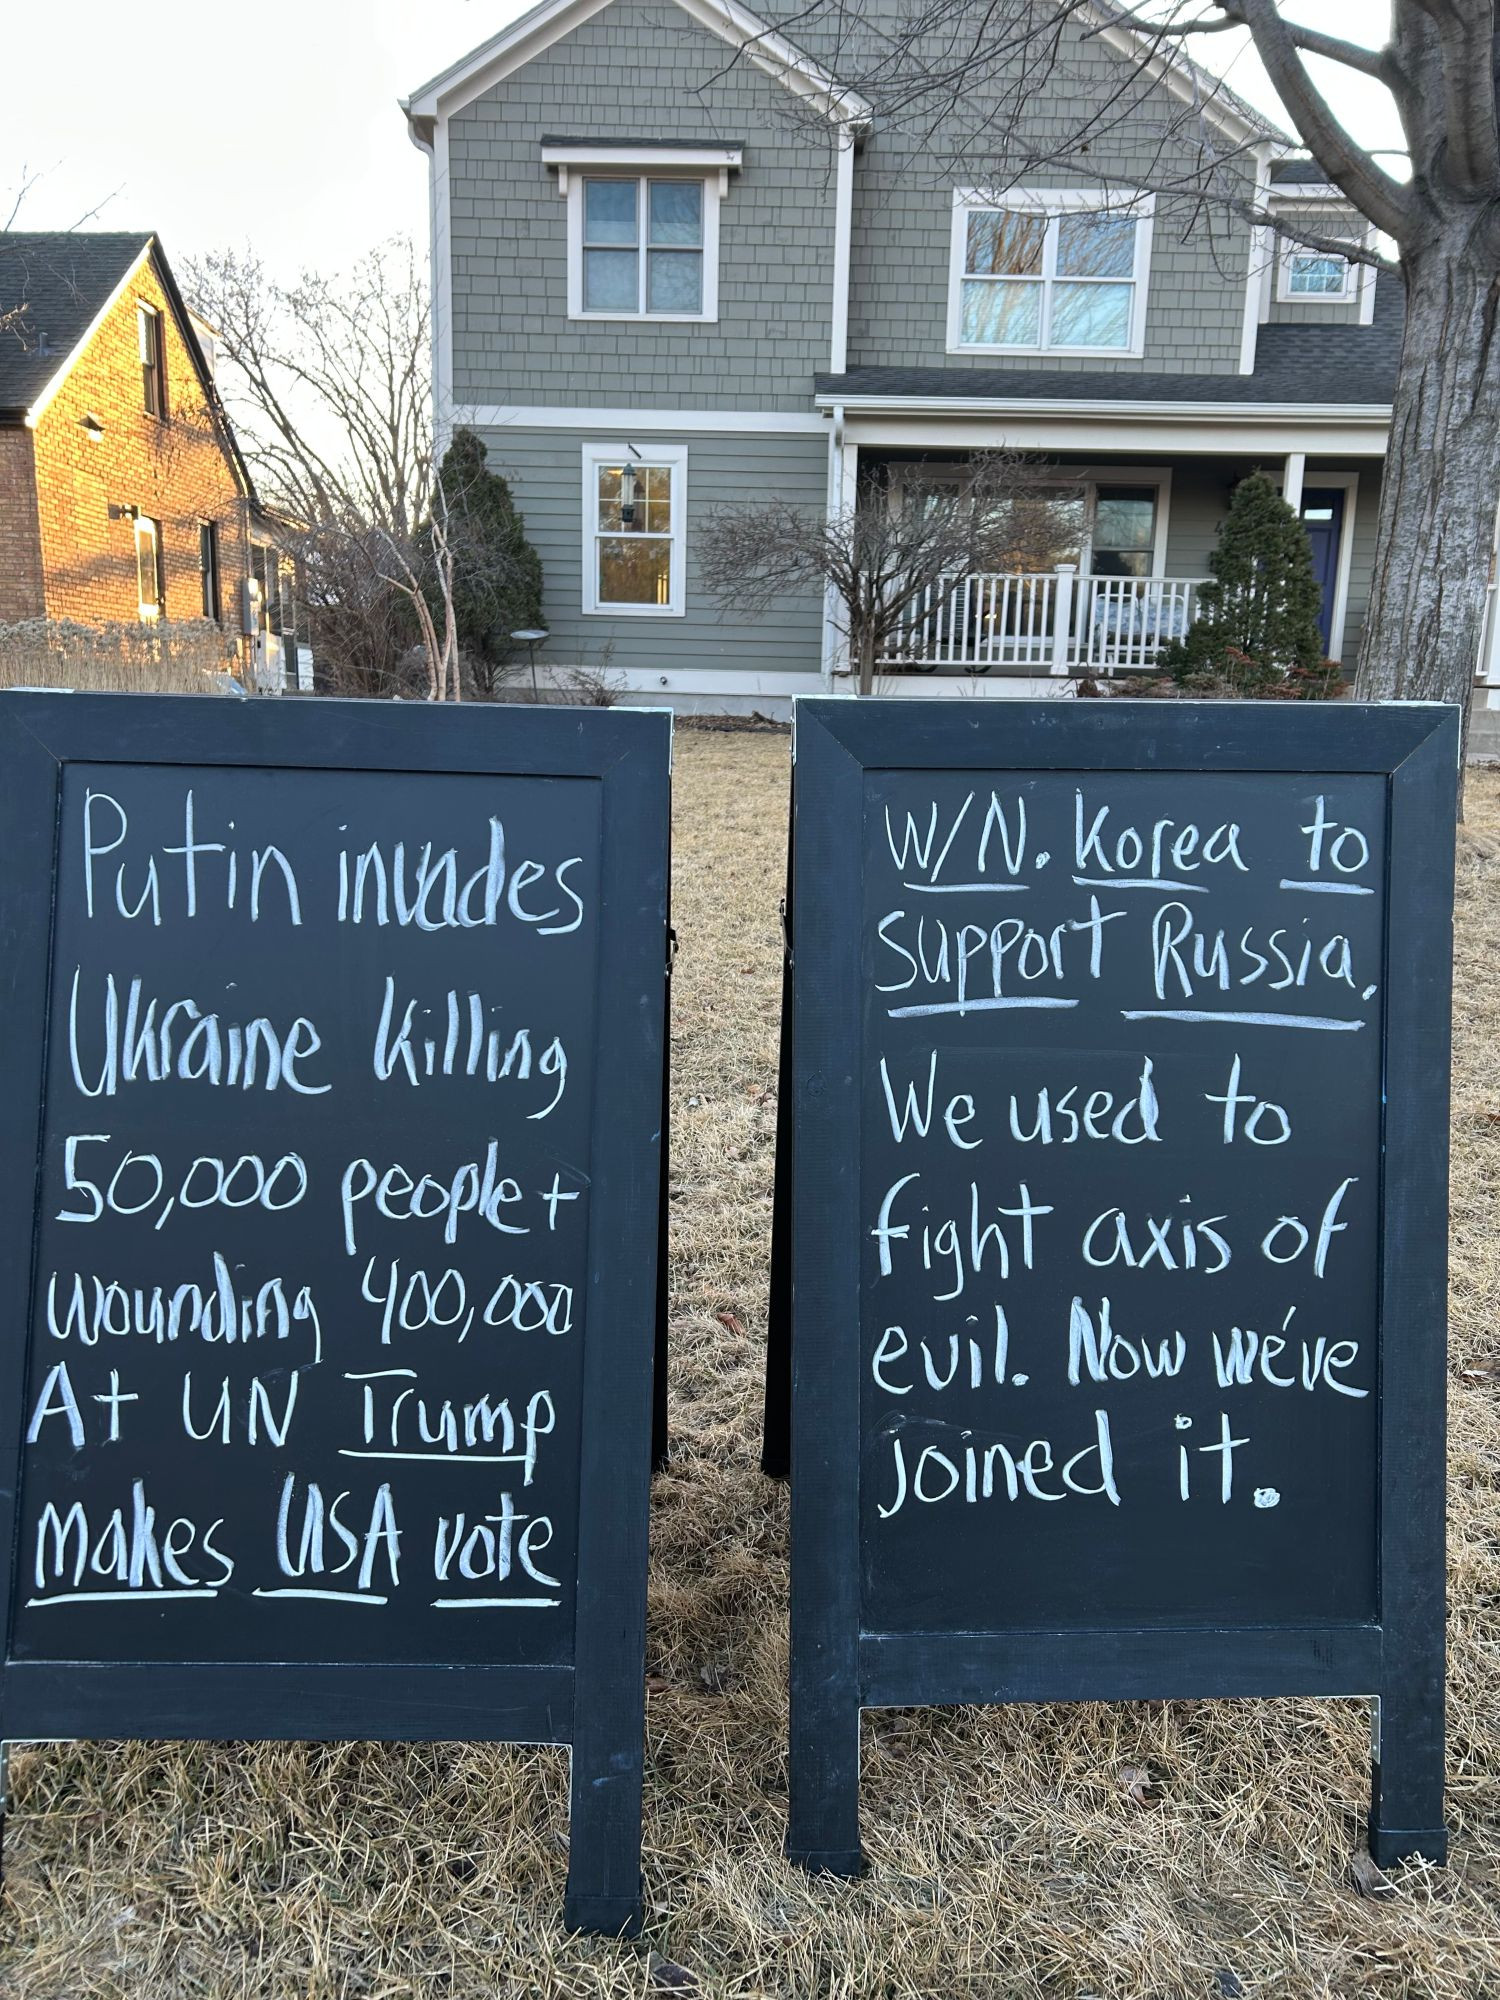 Putin invades
Ukraine killing
50,000 people +
wounding 400,000
At UN Trump
makes USA vote
W/N. Korea to
support Russia.
We used to
fight axis of
evil. Now we've
joined it.